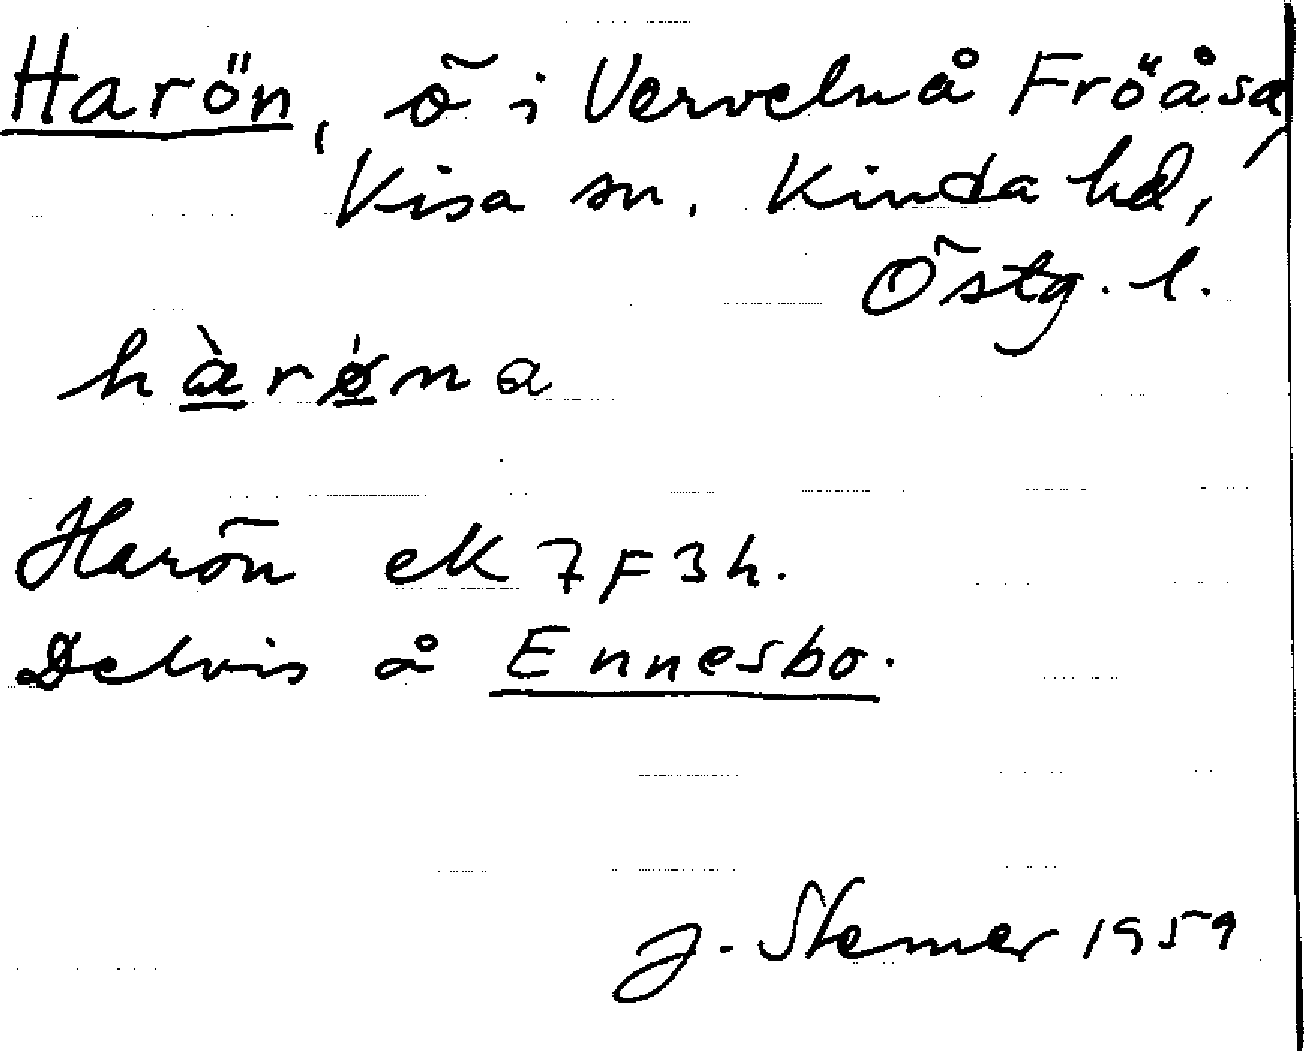 Harön, ö i Verveln å Fröåsa,
Kisa sn. Kinda hd,
Östg. l.
hàrǿna
Harön ek 7F3h.
Delvis å Ennesbo.
J. Stemer 1959